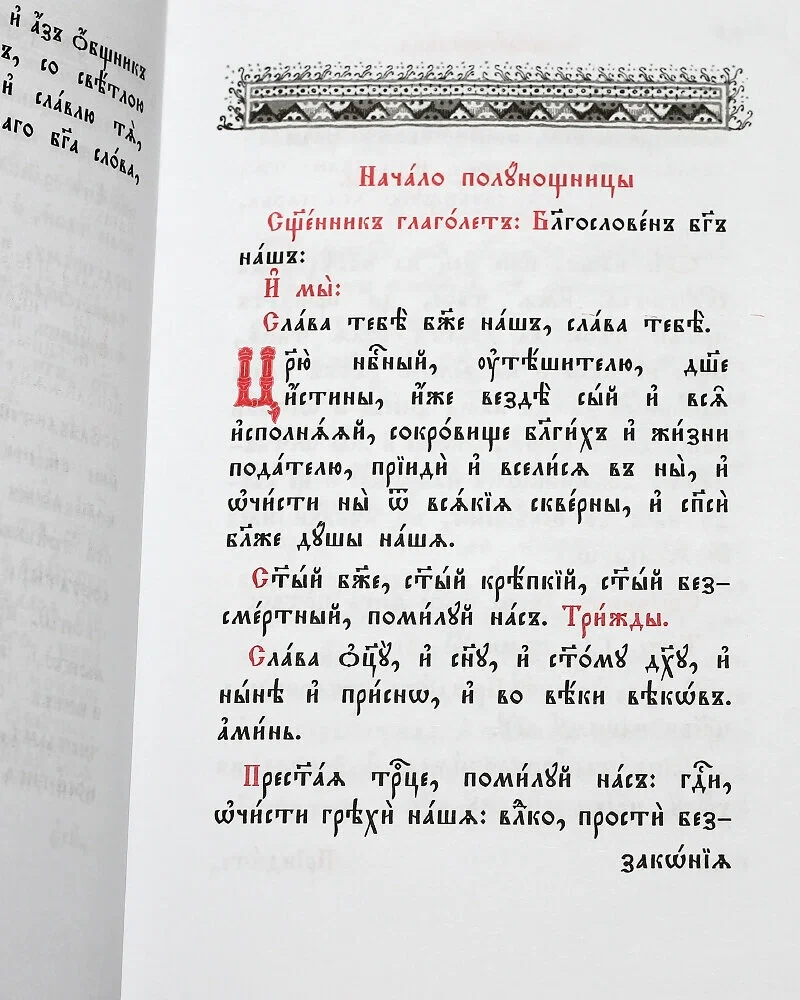 и҆ а҆́зъ ѻ҆́бщникъ
ъ, со свѣ́тлою
и҆ сла́влю тѧ̀,
аго бг҃а сло́ва,
Нача́ло полꙋ́нощницы
Сщ҃е́нникъ глаго́летъ: Блⷭ҇гослове́нъ бг҃ъ
на́шъ:
И҆ мы̀:
Сла́ва тебѣ̀ бж҃е на́шъ, сла́ва тебѣ̀.
Цр҃ю̀ нбⷭ҇ный, ᲂу҆тѣ́шителю, дш҃е
и҆́стины, и҆́же вездѣ̀ сы́й и҆ всѧ̑
и҆сполнѧ́ѧй, сокро́вище бл҃ги́хъ и҆ жи́зни
пода́телю, прїидѝ и҆ всели́сѧ въ ны̀, и҆
ѡ҆чи́сти ны̀ ѿ всѧ́кїѧ скве́рны, и҆ сп҃сѝ
бл҃же дꙋ́шы на́шѧ.
Ст҃ы́й бж҃е, ст҃ы́й крѣ́пкїй, ст҃ы́й без-
сме́ртный, поми́лꙋй на́съ. Три́жды.
Сла́ва ѻ҆ц҃ꙋ̀, и҆ сн҃ꙋ, и҆ ст҃о́мꙋ дх҃ꙋ, и҆
ны́нѣ и҆ при́снѡ, и҆ во вѣ́ки вѣкѡ́въ.
а҆ми́нь.
Прест҃а́ѧ трⷪ҇це, поми́лꙋй на́съ: гдⷭ҇и,
ѡ҆чи́сти грѣхѝ на́шѧ: влⷣко, простѝ без-
закѡ́нїѧ